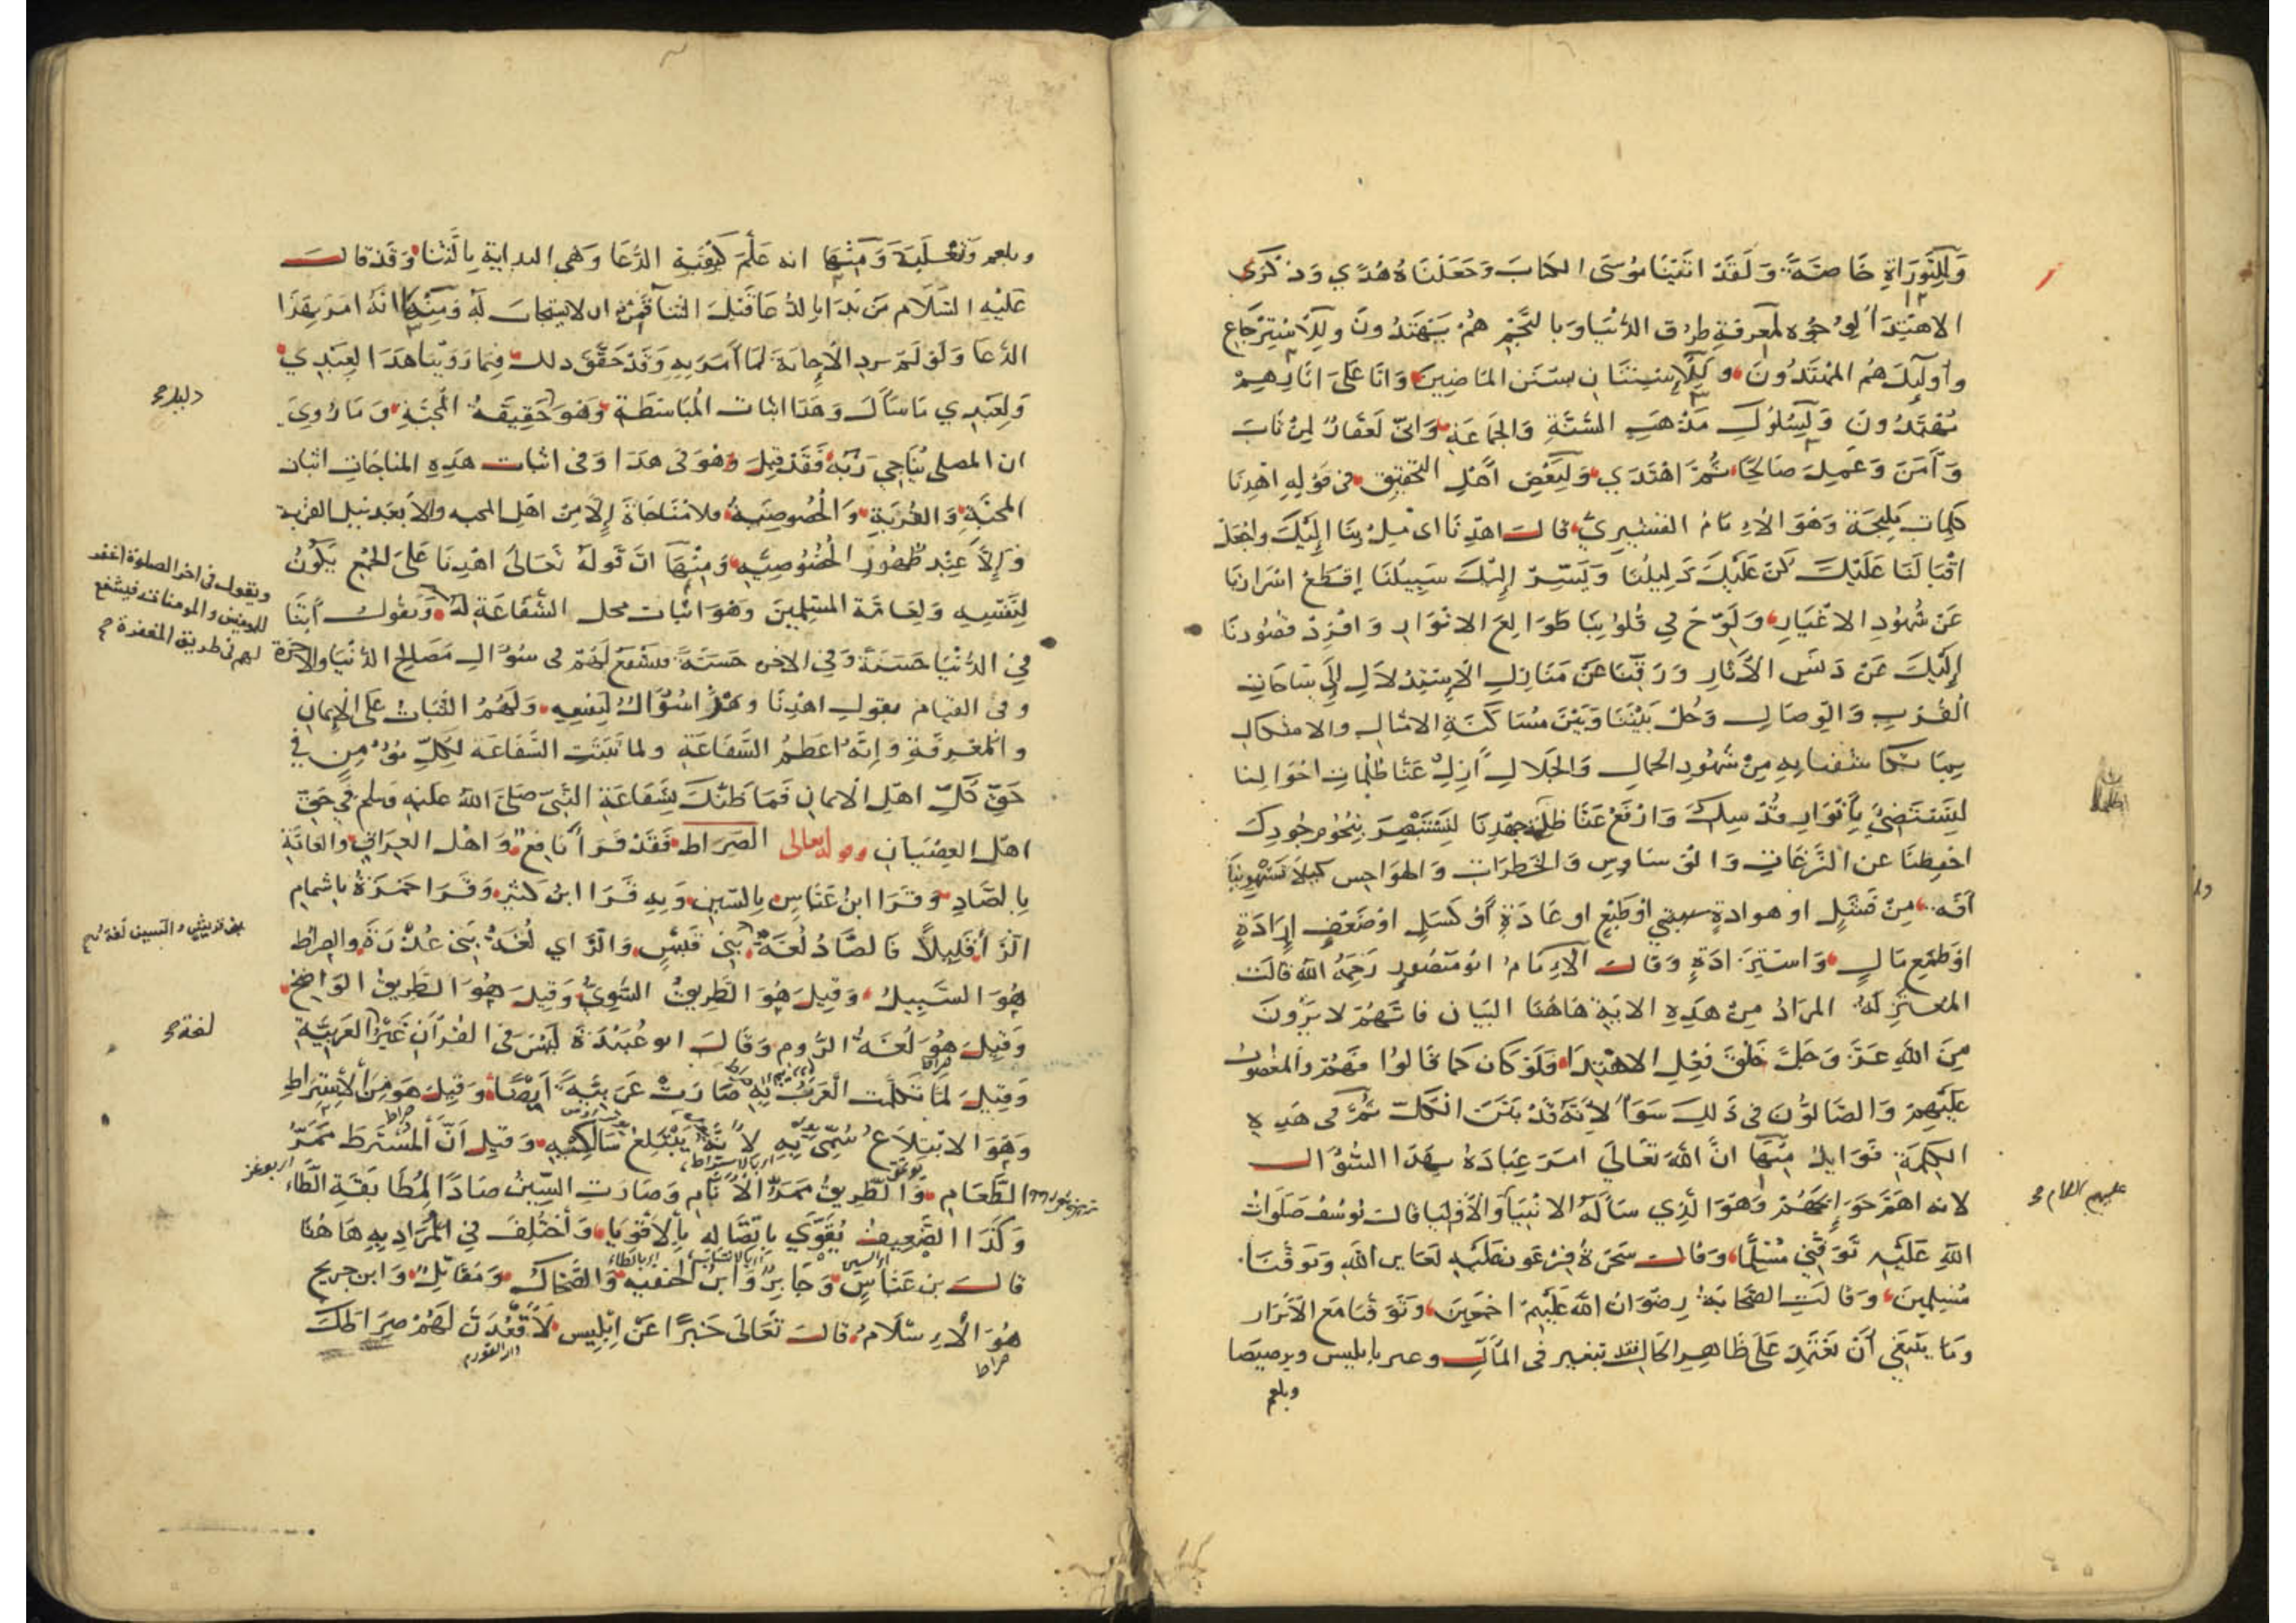 وَللِتَّوْرَاةِ خَاصَّةً وَلَقَدْ اٰتَيْنَا مُوسَى الكتابَ وَجَعَلْنَاهُ هُدًي وَذِكْرَي
الاهْتِدَا لمعرفةِ طرُق الدُّنْيَا وَبالنَّجْمِ هُمْ يَهْتَدُونَ وللاسْتِرْجَاع
وأولَئِكَ هُمُ المُهْتَدُونَ بسُنَنِ المَاضِينَ وَانَّا عَلَى اٰثَارِهِمْ
مُقْتَدُونَ وَلِسُلُوكِ مَذْهَبِ السُّنَّةِ وَالجَمَاعَةِ وَانّي لَغَفَّارٌ لِمَنْ تَابَ
وَآمَنَ وَعَمِلَ صَالِحًا ثُمَّ اهْتَدَي وَلِبَعْضِ أَهْلِ التَّحْقِيقِ في قَوْلِهِ اهْدِنَا
كلِمَات مَلِيحَة وَهُوَ الاِمَامُ القشيرِيُّ قالَ اهْدِنَا اى مِلْ بِنَا إِلَيْكَ واجْعَلْ
اقْبَالَنَا عَلَيْكَ كُنْ عَلَيْكَ دَلِيلُنَا وَيَسِّرْ إِلَيْكَ سَبِيلَنَا إقطَعْ اسْرَارنَا
عَنْ شُهُودِ الاغْيَارِ وَلَوِّحْ في قُلُوبِنَا طَوَالِعَ الانْوَارِ وَافْرِدْ قصُودَنَا
إِلَيْكَ عَنْ دَنَسِ الآثَارِ وَرَقِّنَا عَنْ مَنَازِلِ الاِسْتِدْلَالِ إِلَى سَاحَاتِ
القُرْبِ وَالوِصَالِ وَحُلْ بَيْنَنَا وَبَيْنَ مُسَاكَنَةِ الامْثالِ والاشكالِ
بِمَا تكاشفنا بِهِ مِنْ شُهُودِ الجَمَالِ وَالجَلَالِ أَزِلْ عَنَّا ظُلُمَاتِ احْوَالِنا
لِنَسْتَضِئَ بِأَنْوَارِ قُدْسِكَ وَارْفَعْ عَنَّا ظِلَّ جهْدِنَا لِنَسْتَبْصِرَ بِنُجُومِ جُودِكَ
احْفِظْنَا عن النَّزَغَاتِ وَالوَسَاوِسِ وَالخَطَرَاتِ وَالهَوَاجِسِ كَيْلا
آفَة مِنْ او هوادةٍ او طَبْعٍ او عَادَةٍ أَوْ كَسَلٍ اوْ ضَعْفِ إِرَادَةٍ
اوْ طَمَعِ مَالٍ وَاسْتِزَادَةٍ وَقالَ الاِمَامُ ابو مَنْصُورٍ رَحِمَهُ اللهُ قَالَت
المُعْتَزِلَةُ المرَادُ مِنْ هَذِهِ الايَةِ هَاهُنَا البَيَان فَاِنَّهُمْ لا يَرَوْنَ
مِنَ اللهِ عَزَّ وَجَلَّ خَلْقَ فِعْلِ الاهْتِدَا وَلَوْ كَان كمَا قَالُوا فَهُمْ والمغضُوبُ
عَلَيْهِمْ وَالضَّالُّونَ فى ذَلِكَ سَوَا لاَنَّهُ قَدْ بَيَّنَ الكُلّ ثُمَّ فى هَذِهِ
الكَلِمَةِ فَوَائِدُ مِنْهَا انَّ اللهَ تعَالَي امَرَ عِبَادَهُ بِهَذَا السُّؤَال
لانه اهَمُّ حَوَائِجِهُمْ وَهُوَ الَّذِي سَأَلَهُ الانْبِيَا وَالاَوْلِيَا قَالَ يُوسُفُ صَلَوَاتُ
اللهِ عَلَيْهِ تَوَفَّنِي مُسْلِمًا وَقالت سَحَرَةُ فِرْعَون وَتَوَفَّنَا
مُسْلِمِينَ وَقالَتِ الصَّحَابَة رِضْوَانُ اللهِ عَلَيْهِمْ اجْمَعِينَ وَتَوَفَّنَا مَعَ الاَبْرَار
وَمَا يَنْبَغِي أَنْ نَعْتَمِدَ عَلَى ظَاهِرِ الحَالِ فقد تتغير في المَآلِ بابليس وبرصيصَا
وبلعم
عليهم السلام
وبلعم وَثعْلَبَةَ وَمِنْهَا انه عَلَّمَ كَيْفِيَّةِ الدُّعَا وَهِي البداية بِالثَّنَا وَقَدْ قالَ
عَليْهِ السَّلَام مَن بَدَا بالدُّعَا قَبْلَ الثَّنَا قَمِنٌ ان لا يستجاب لَهُ وَمِنْهَا انَّهُ امَرَ بِهَذَا
الدُّعَا وَلَوْ لَمْ يرد الاِجابَةَ لَمَا أَمَرَ بِهِ وَقَدْ حَقَّقَ ذلك فِيمَا رَوَيْنَا هَذَا لِعَبْدِي
وَلِعَبْدِي مَا سَأَلَ وَهَذَا اثْبَات المُبَاسَطَةِ وَهُوَ حَقِيقَةُ المُحَبَّةِ وَمَا رُوِيَ
ان المصلى يُنَاجِي رَبَّهُ فَقَدْ قِيلَ وَهُوَ فى هَذَا وَفى اثْبَات هَذِهِ المنَاجَاتِ اثبات
المحبَّةِ وَالقُرْبَةِ وَالخُصُوصِيَّةِ فلا مُنَاجَاةَ إِلَّا مِنْ اهْلِ المحبه والاّ بَعْد نيل القربة
وَإِلاَّ عِنْدَ ظُهُورِ الخُصُوصِيَّةِ وَمِنْهَا انَّ قَوْلَهُ تَعَالَى اهْدِنَا عَلَى الجَمْعِ يَكُونُ
لِنَفْسِهِ وَلِعَامَّة المسْلِمِينَ وَهُوَ اثبات محل الشَّفَاعَةِ لَهُ وَيَقُول آتِنَا
فِي الدُّنْيَا حَسَنَةً وَفِي الاخرة حَسَنَةً فيشْفَعُ لَهُمْ فى سُؤَالِ مَصَالِحِ الدُّنْيَا والاخِرَة
وفى القيَام يقول اهْدِنَا وَهَذَا سُؤَالٌ لِنَفْسِهِ وَلَهُمُ الثَّبَات عَلَى الاِيمَانِ
والمَعْرِفَةِ وَإِنَّهُ اعَظَمُ الشَّفَاعَةِ ولما ثَبَتَتِ الشَّفَاعَة لِكُلِّ مُؤْمِنٍ في
حَقِّ كُلِّ اهْلِ الايمانِ فَمَا ظَنُّكَ بِشَفَاعَةِ النَّبِيّ صَلَّى اللهُ عَلَيْهِ وَسلم في حَقِّ
اهْلِ العِصْيَانِ وقوله تعالى الصِّرَاط فَقَدْ قَرَأ نَافِعٌ وَاهْل العِرَاقِ وَالعَامَّة
بِالصَّادِ وَقَرَا ابنُ عَبَّاسٍ بِالسّينِ وَبِهِ قَرَا ابنُ كَثِيرٍ وَقَرَا حَمْزَةُ بِاشْمَامِ
الزَّاءِ قَلِيلاً فَالصَّادُ لُغَةُ بَنِي قَيْسٍ وَالزَّاي لُغَةُ بَنِي عُذْرَةَ وَالصِّرَاطُ
هُوَ السَّبِيلُ وَقِيلَ هُوَ الطَّرِيقُ السَّوِيُّ وَقِيلَ هُوَ الطَّرِيقُ الوَاضِحُ
وَقِيلَ هُوَ لُغَةُ الرُّومِ وَقَالَ ابو عُبَيْدَةَ لَيْسَ فى القُرْآنِ غَيْرُ العَرَبِيَّةِ
وَقِيلَ لَمَّا تَكَلَّمَت العَرَبُ بِهِ صَارَتْ عَرَبِيَّةً ايْضًا وَقِيلَ هُوَ مِنَ الاسْتِرَاطِ
وَهُوَ الابْتِلَاعُ سُمِّيَ بِهِ لاَنَّهُ يَبْتَلِعُ سَالِكِيهِ وَقِيلَ اَنَّ المُسْتَرَطَ مَمَرُّ
الطَّعَامِ وَالطَّرِيقُ مَمَرُّ الاَنَامِ وَصَارَتِ السِّينُ صَادًا لِمُطَابَقَةِ الطَّاءِ
وَكَذَا الضَّعِيفُ يُقَوَّي بِاتّصَاله بِالاَقْوِيَا وَاُخْتُلِفَ فِي المُرَادِ بِهِ هَاهُنَا
قالَ بن عَبَّاسٍ وَجَابِرٌ وَابنُ الحنفيه وَالضَّحَّاكُ وَمُقَاتِلٌ وَابن جريج
هُوَ الاِسْلَامُ قَالَ تَعَالَى خَبَرًا عَنْ اِبْلِيس لاَقْعُدَنَّ لَهُمْ صِرَاطَكَ
ويقول فى اخر الصلوة اغفر
للمومنين والمومنات فيشفع
لهم فى طريق المغفرة
لغة